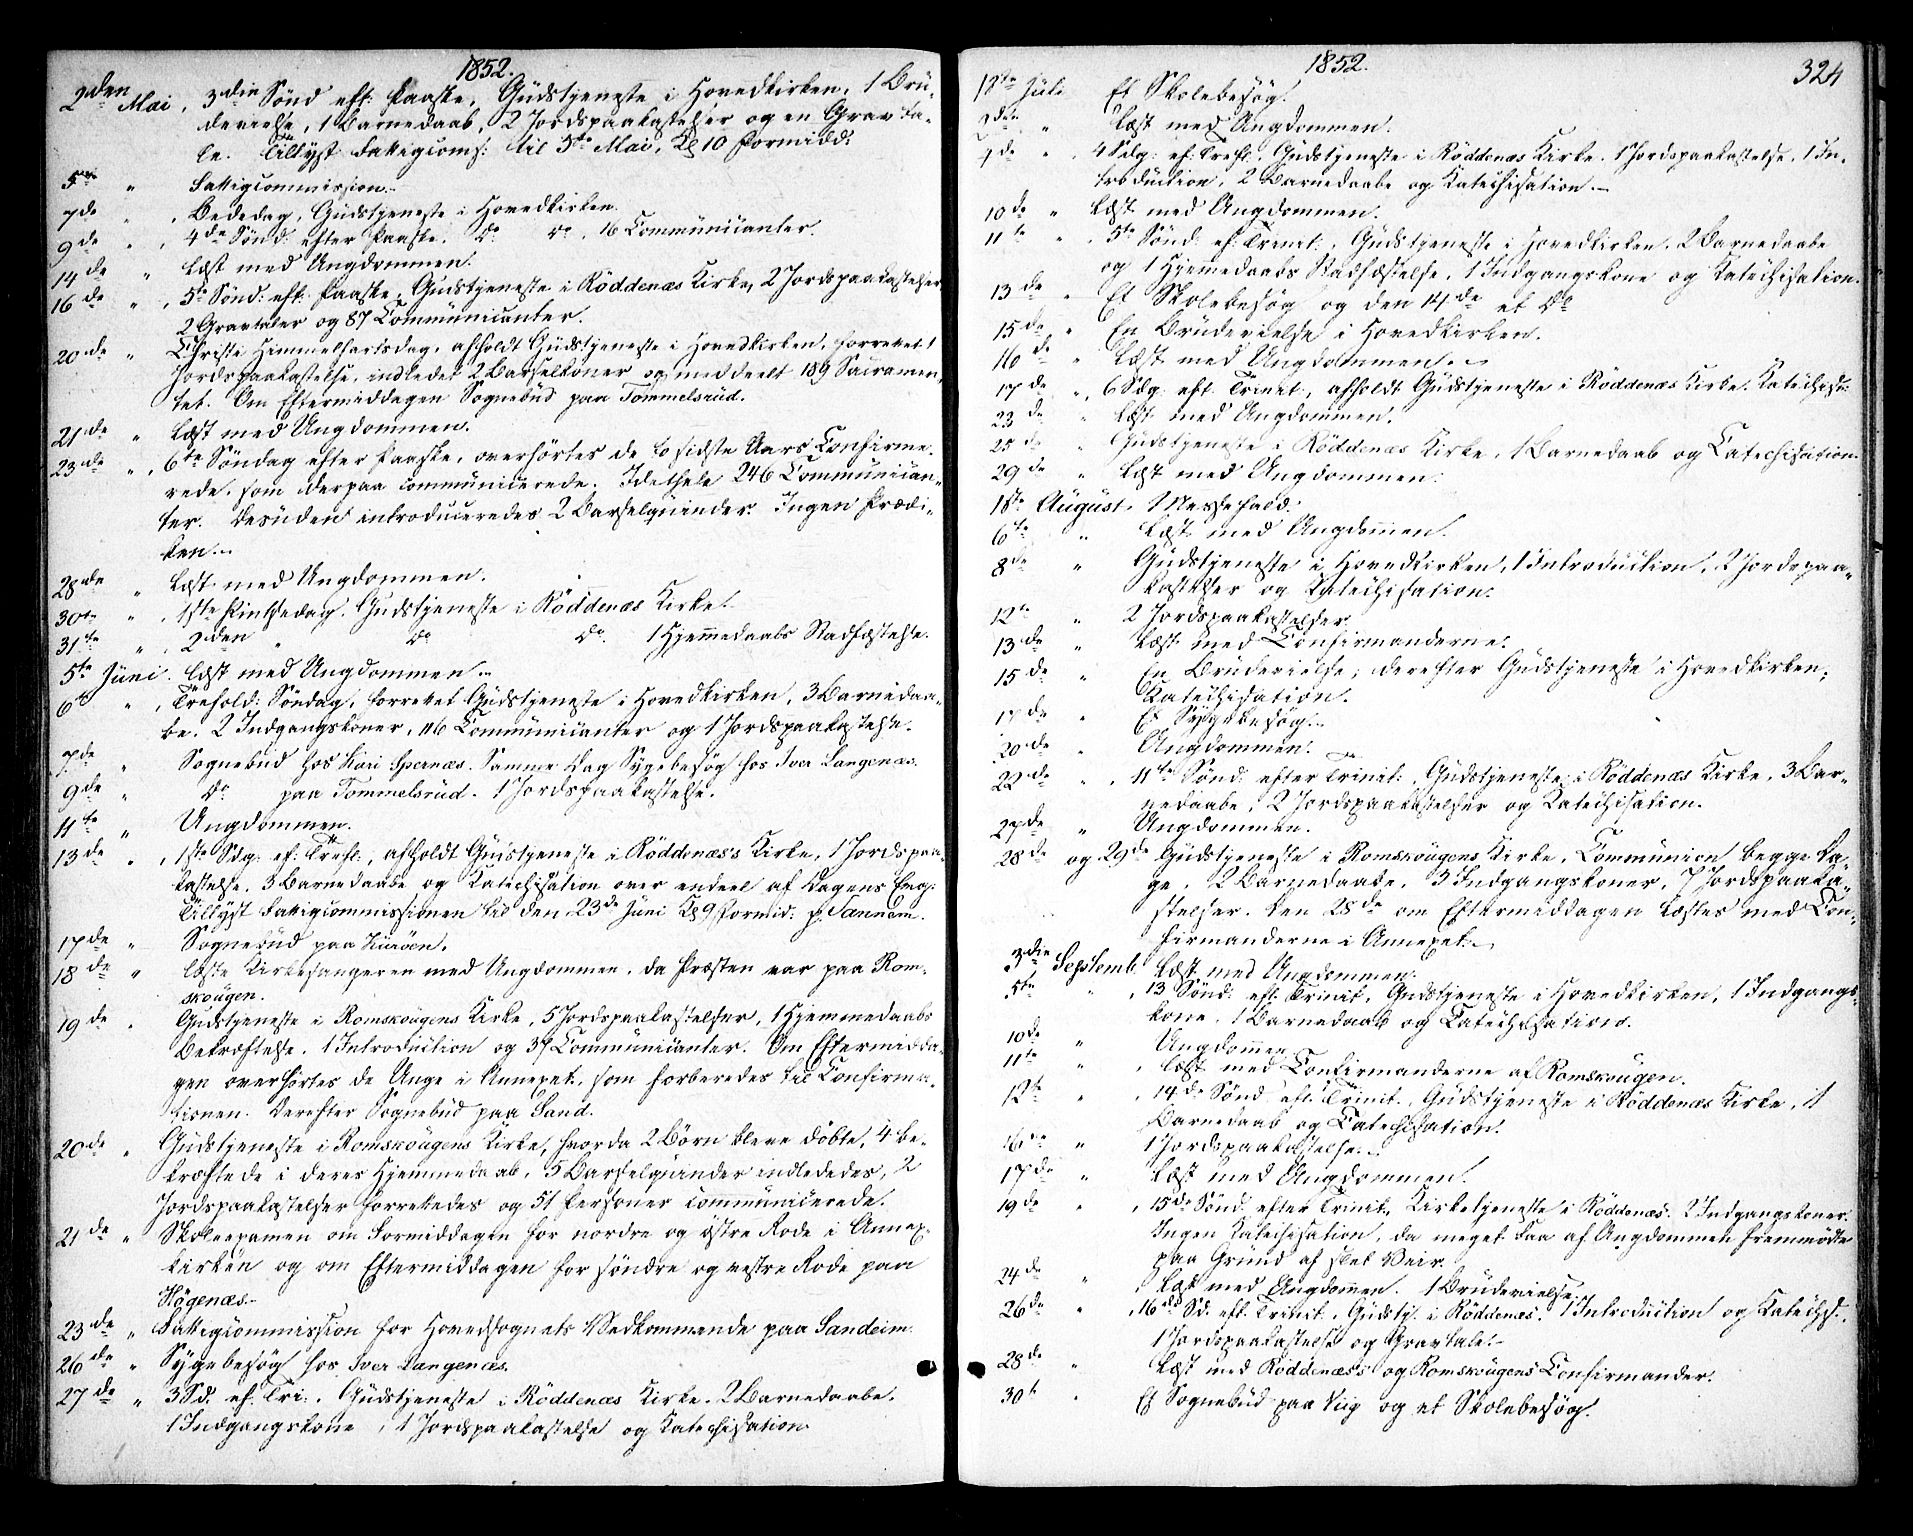 1852.
2den Mai, 3die Sönd eft: Paaske, Gudstjeneste i Hovedkirken, 1 Bru-
devielse, 1 Barnedaab, 2 Jordspaakastelser og en Gravta-
le. Tillyst Fattigcoms: til 5te Mai, Kl 10 Formidd:
5te " Fattigcommission.-
7de " , Bededag, Gudstjeneste i Hovedkirken.
9de " , 4de Sönd: efter Paaske. Do Do, 16 Communicanter.
14de " Læst med Ungdommen.
16de " , 5te Sönd: eft: Paaske, Gudstjeneste i Röddenæs Kirke, 2 Jordspaakastelser,
2 Gravtaler og 87 Communicanter.
20de " Christi Himmelfartsdag, afholdt Gudstjeneste i Hovedkirken, forrettet 1
Jordspaakastelse, indledet 2 Barselkoner og meddeelt 189 Sacramen-
tet. Om Eftermiddagen Sognebud paa Tommelsrud.
21de " Læst med Ungdommen.
23de " , 6te Söndag efter Paaske, overhörtes de to sidste Aars Confirme-
rede, som derpaa communicerede. Idethele 246 Communican-
ter. Desuden introduceredes 2 Barselquinder. Ingen Prædi-
ken.-
28de " Læst med Ungdommen.
30te " , 1ste Pintsedag. Gudstjeneste i Röddenæs Kirke.
31te " , 2den " Do Do. 1 Hjemmedaabs Stadfæstelse.
5te Juni. Læst med Ungdommen.-
6te " , Trefold: Söndag, forrettet Gudstjeneste i Hovedkirken, 3 Barnedaa-
be. 2 Indgangskoner, 116 Communicanter og 1 Jordspaakastelse.
7de " Sognebud hos Kari Spernæs. Samme Dag Sygebesög hos Iver Langenæs.
9de " Do paa Tommelsrud. 1 Jordspaakastelse.
11te " Ungdommen.
13de " , 1ste Sdg: ef: Tref:, afholdt Gudstjeneste i Röddenæs's Kirke, 1 Jordspaa-
kastelse. 3 Barnedaabe og Katechisation over endeel af Dagens Evg:
Tillyst Fattigcommissionen til den 23de Juni Kl 9 Formid: p. Sandem.
17de " Sognebud paa .
18de " læste Kirkesangeren med Ungdommen, da Præsten var paa Rom-
skougen.
19de " Gudstjeneste i Romskougens Kirke, 5 Jordspaakastelser, 1 Hjemmedaabs
Bekræftelse. 1 Introduction og 37 Communicanter. Om Eftermidda-
gen overhörtes de Unge i Annexet, som forberedes til Confirma-
tionen. Derefter Sognebud paa Sand.
20de " Gudstjeneste i Romskougens Kirke, hvorda 2 Börn bleve döbte, 4 be-
kræftede i deres Hjemmedaab, 5 Barselquinder indlededes, 2
Jordspaakastelser forrettedes og 51 Personer communicerede.
21de " Skoleexamen om Formiddagen for nordre og östre Rode i Annex-
kirken og om Eftermiddagen for söndre og vestre Rode paa
Högenæs.-
23de " Fattigcommission for Hovedsognets Vedkommende paa Sandeim.
26de " Sygebesög hos Iver Langenæs.
27de " 3 Sd. ef: Tri:. Gudstjeneste i Röddenæs Kirke. 2 Barnedaabe.
1 Indgangskone, 1 Jordspaakastelse og Katechisation
1852.
324
 Juli Et Skolebesög.
2den " Læst med Ungdommen.
4de " , 4 Sdg: ef: Tref:. Gudstjeneste i Röddenæs Kirke. 1 Jordspaakastelse. 1 In-
troduction, 2 Barnedaabe og Katechisation.-
10de " Læst med Ungdommen.
11te " , 5te Sönd: ef: Trinit:, Gudstjeneste i Hovedkirken. 2 Barnedaabe
og 1 Hjemmedaabs Stadfæstelse, 1 Indgangskone og Katechisation.
13de " Et Skolebesög og den 14de et Do
15de " En Brudevielse i Hovedkirken.
16de " Læst med Ungdommen.-
17de " , 6 Sdg: eft: Trinit:, afholdt Gudstjeneste i Röddenæs Kirke. Katechist:
23de " Læst med Ungdommen.
25de " Gudstjeneste i Röddenæs Kirke, 1 Barnedaab og Catechisation.
29de " Læst med Ungdommen.
1ste August. Messefald.
6te " Læst med Ungdommen.
8de " Gudstjeneste i Hovedkirken, 1 Introduction, 2 Jordspaa-
kastelser og Katechisation.
12te " 2 Jordspaakastelser.
13de " Læst med Confirmanderne.
15de " En Brudevielse; derefter Gudstjeneste i Hovedkirken,
Katechisation.
17de " Et Sygebesög.
20de " Ungdommen.
22de " , 11te Sönd: efter Trinit:, Gudstjeneste i Röddenæs Kirke, 3 Bar-
nedaabe, 2 Jordspaakastelser og Katechisation.
27de " Ungdommen.
28de og 29de Gudstjeneste i Romskougens Kirke, Communion begge Da-
ge. 2 Barnedaabe, 3 Indgangskoner, 7 Jordspaaka-
stelser. Den 28de om Eftermiddagen læstes med Con-
firmanderne i Annexet.-
3die Septemb. Læst med Ungdommen.
5te " , 13 Sönd: eft: Trinit, Gudstjeneste i Hovedkirken, 1 Indgangs-
kone. 1 Barnedaab og Catechisation.
10de " Ungdommen
11te " , Læst med Confirmanderne af Romskougen.
12te " , 14de Sönd eft: Trinit:, Gudstjeneste i Röddenæs Kirke, 1
Barnedaab og Catechisation.
16de " 1 Jordspaakastelse.
17de " Læst med Ungdommen.
19de " , 15de Sönd: efter Trinit, Kirketjeneste i Röddenæs. 2 Indgangskoner.
Ingen Katechisation, da meget faa af Ungdommen fremmödte
paa Grund af slet Veir.
24de " , Læst med Ungdommen. 1 Brudevielse.
26de " , 16de Sd. eft: Trinit:, Gudstj. i Röddenæs. 1 Introduction og Katechs:.
1 Jordspaakastelse og Gravtale.-
28de " Læst med Röddenæs's og Romskougens Confirmander.
30te " Et Sognebud paa Viig og et Skolebesög.